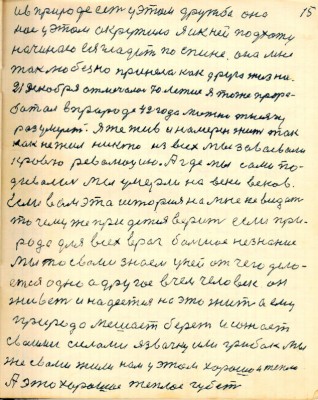 15
и в природе есть у этом дружба оно
мое у этом окружило я к ней подхожу
начинаю ея гладеть по спине. она мне
так любезно приняла как друга жизни.
21 декабря отмечали 70 летия я тоже прора-
ботал в природе 42 года можно
разумует. я же жив и намерен жит так
как не жил никто из всех мы завоевали
революцию. А где мы сами по-
девались мы умерли на веки веков.
Если вам эта история на мне не видать
то чему же придется верит если при-
рода для всех враг болшое незнание
мы то своми знаем у ней от чего дело-
ется одно а другое в чем человек он
живет и надеется на это жит а ему
природа мешает берет и сожает
своими силами язвачку или грибок мы
же свами жили нам у этом хорошо и тепло
А это хорошое теплое губет